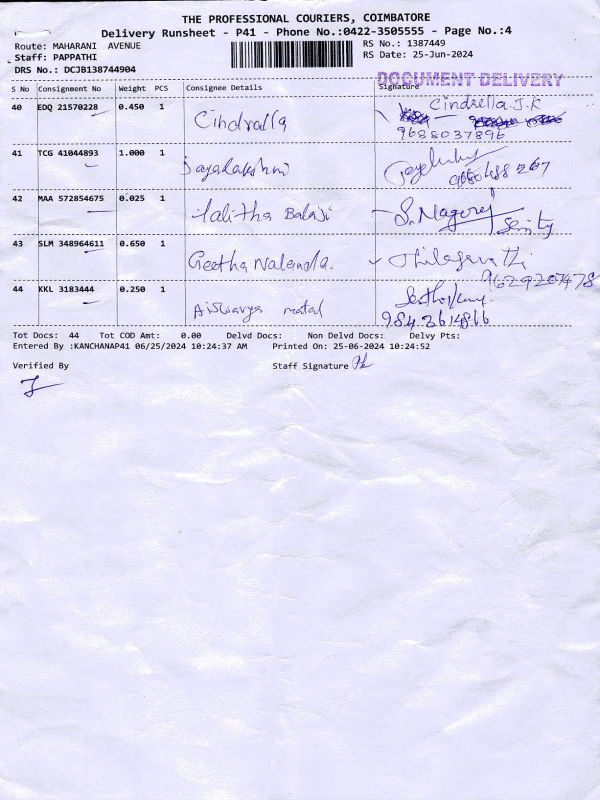 THE PROFESSIONAL COURIERS, COIMBATORE
Delivery Runsheet - P41 - Phone No.:0422-3505555 - Page No.:4
Route: MAHARANI AVENUE
RS No.: 1387449
Staff: PAPPATHI
RS Date: 25-Jun-2024
DRS No.: DCJB138744904
DOCUMENT DELIVERY
S No Consignment No Weight PCS Consignee Details Signature
40 EDQ 21570228 0.450 1 Cindrella Cindrella.J.K
9688037896
41 TCG 41044893 1.000 1 Jayalakshmi
42 MAA 572854675 0.025 1 Lalitha Balaji S. Nagoraj
43 SLM 348964611 0.650 1 Geetha Nalenda. Thilagavathi
9629207478
44 KKL 3183444 0.250 1 Aishwarya
9843614866
Tot Docs: 44 Tot COD Amt: 0.00 Delvd Docs: Non Delvd Docs: Delvy Pts:
Entered By :KANCHANAP41 06/25/2024 10:24:37 AM Printed On: 25-06-2024 10:24:52
Verified By Staff Signature